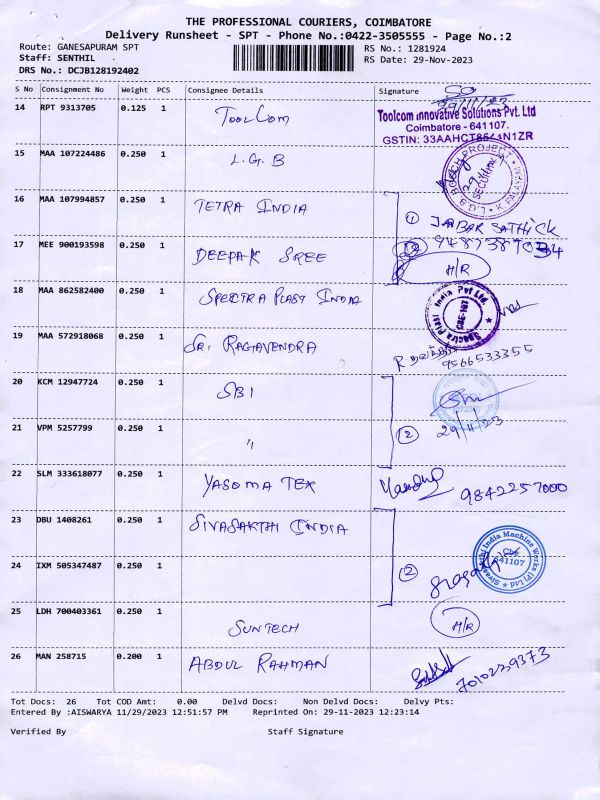 THE PROFESSIONAL COURIERS, COIMBATORE
Delivery Runsheet - SPT - Phone No.:0422-3505555 - Page No.:2
Route: GANESAPURAM SPT RS No.: 1281924
Staff: SENTHIL RS Date: 29-Nov-2023
DRS No.: DCJB128192402
S No Consignment No Weight PCS Consignee Details Signature
29/11/23
14 RPT 9313705 0.125 1 TOOLCOM Toolcom Innovative Solutions Pvt. Ltd
Coimbatore - 641107.
15 MAA 107224486 0.250 1 L.G.B
SECURITY
16 MAA 107994857 0.250 1 TETRA INDIA
① JABAR SATHICK
17 MEE 900193598 0.250 1 DEEPAK SREE
H/R
18 MAA 862582400 0.250 1 SPECTRA PLAST INDIA Spectra Plast India Pvt Ltd.
19 MAA 572918068 0.250 1 SRI RAGAVENDRA
9566533355
20 KCM 12947724 0.250 1 SBI
21 VPM 5257799 0.250 1 " ② 29/11/23
22 SLM 333618077 0.250 1 YASOMA TEX 9842257000
23 DBU 1408261 0.250 1 SIVASAKTHI INDIA
Sivasakthi India Machine Works (P) Ltd
24 IXM 505347487 0.250 1 ②
25 LDH 700403361 0.250 1 SUNTECH H/R
26 MAN 258715 0.200 1 ABDUL RAHMAN 7010239373
Tot Docs: 26 Tot COD Amt: 0.00 Delvd Docs: Non Delvd Docs: Delvy Pts:
Entered By :AISWARYA 11/29/2023 12:51:57 PM Reprinted On: 29-11-2023 12:23:14
Verified By Staff Signature